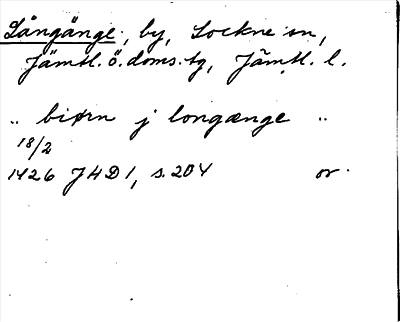 Långänge, by, Lockne sn,
Jämtl. ö. doms. tg, Jämtl. l.
" biørn j longænge "
18/2
1426 JHD 1, s. 204 or.